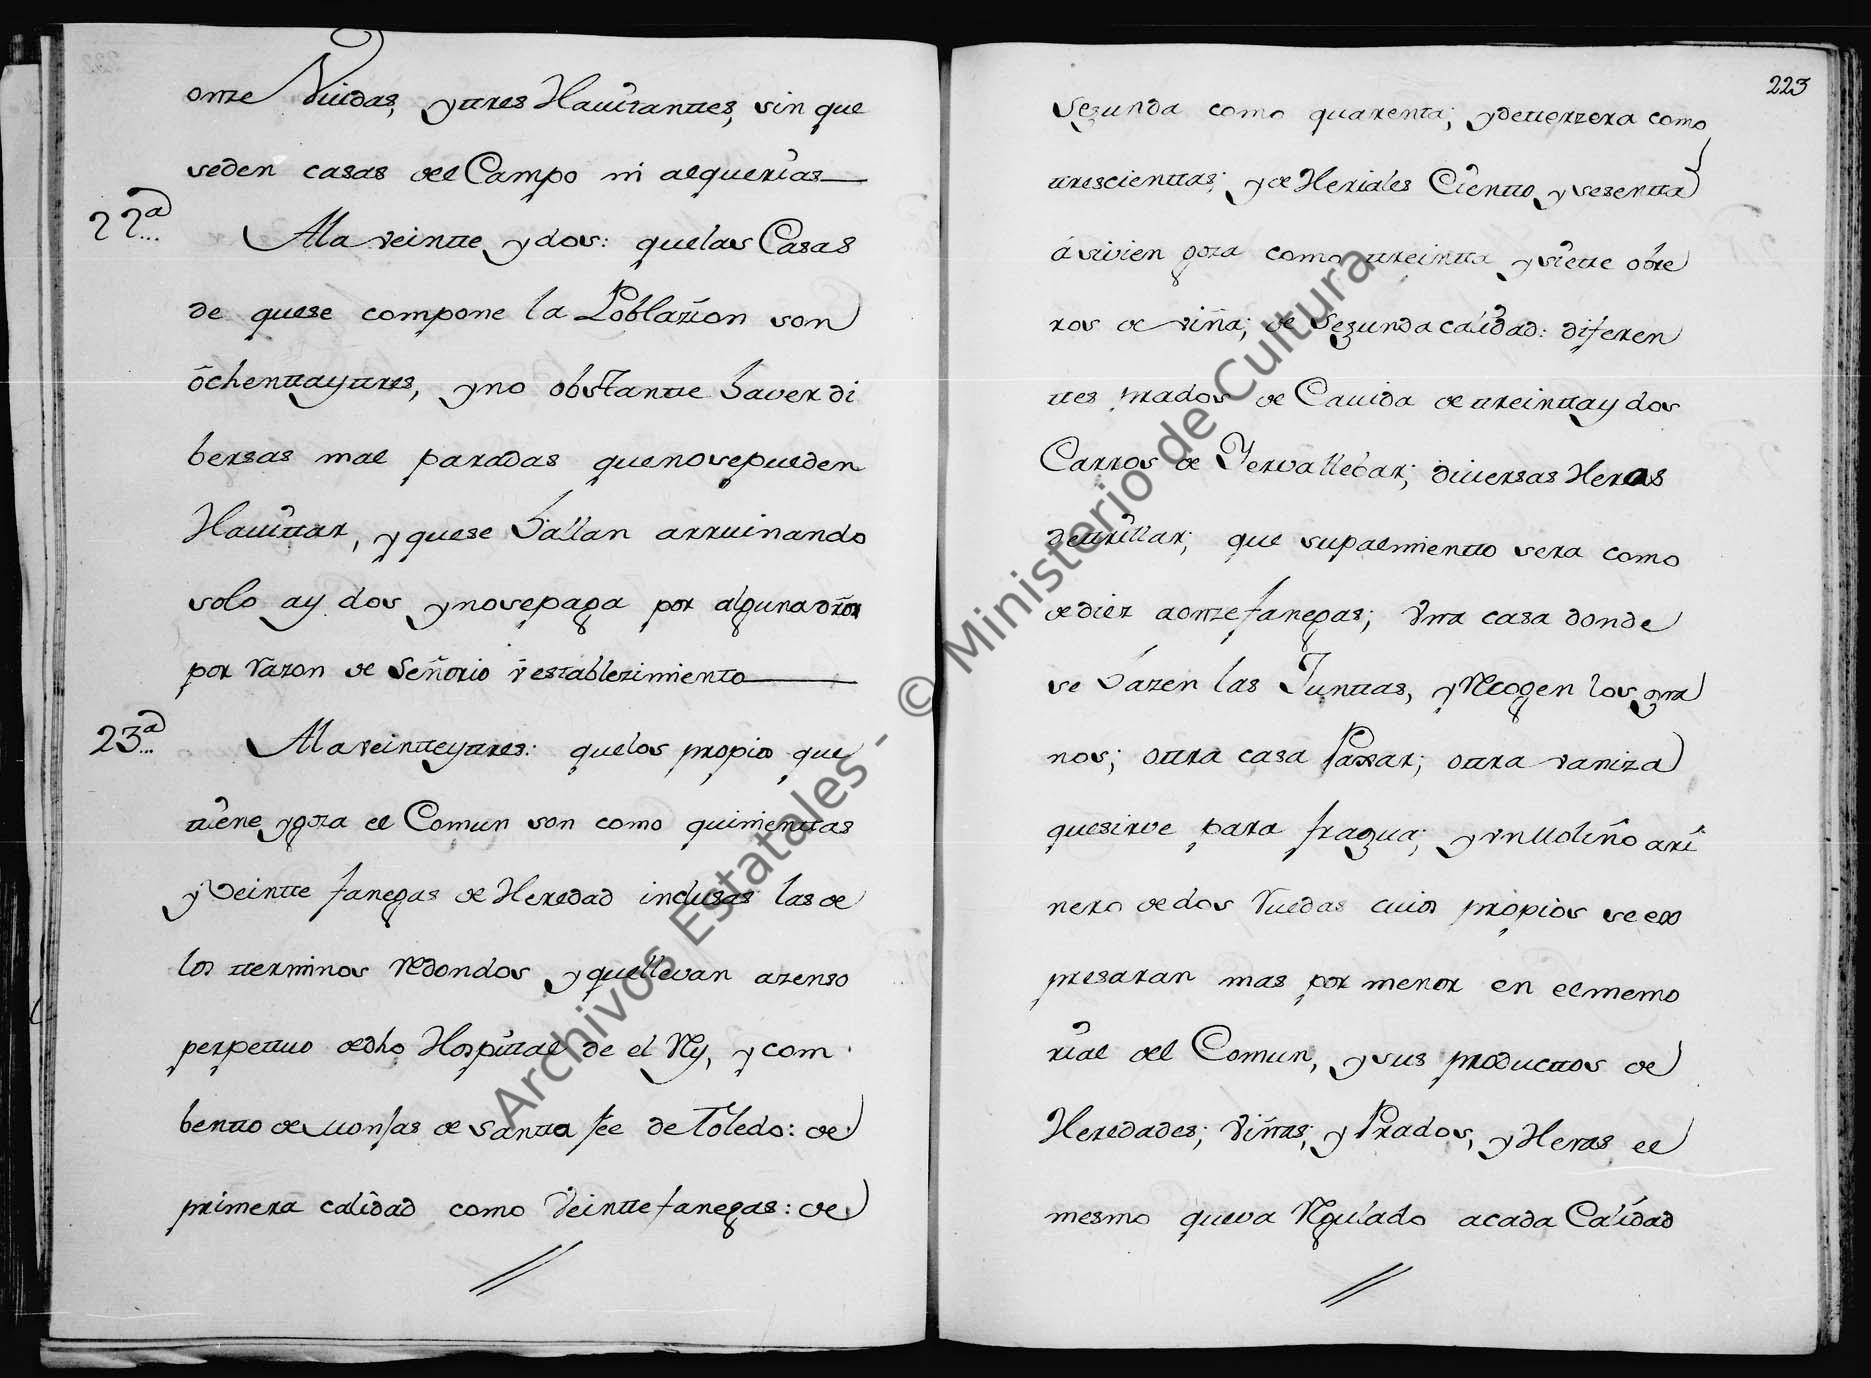 onze Viudas, y ttres Havittanttes, sin que
seden casas del Campo ni alquerias
22ª...
Ala veintte y dos: quelas Casas
de quese compone la Poblazion son
ochenttayttres, y no obstantte haver di
bersas mal paradas quenosepueden
Havittar, y quese hallan arruinando
solo ay dos y nosepaga por alguna dhos
por razon de Señorio ú establezimiento
23ª...
Ala veintteyttres: quelos propios que
ttiene ygoza el Comun son como quinienttas
y Veintte fanegas de Heredad inclusas las de
los tterminos redondos y quellevan azenso
perpettuo dedho Hospittal de el Rey, y com
bentto de Monjas de Santta fee de Toledo: de
primera calidad como Veintte fanegas: de
223
Segunda como quarenta; y detterzera como
ttrescienttas; y de Heriales Cientto y sesentta
á sivien goza como ttreintta y siette obre
ros de viña; de Segunda calidad: diferen
ttes prados de Cavida de ttreinttay dos
Carros de Yerva llebar; diversas Heras
dettrillar; que supalmientto sera como
de diez aonze fanegas; Una casa donde
se hazen las Junttas, y Recogen los gra
nos; ottra casa Paxar; ottra vaniza
quesirve para fragua; y vn Molino ari
nero de dos Ruedas cuios propios se ex
presaran mas por menor en el memo
rial del Comun, y sus producttos de
Heredades; Viñas; y Prados, y Heras el
mesmo queva Regulado acada Calidad
Archivos Estatales - © Ministerio de Cultura